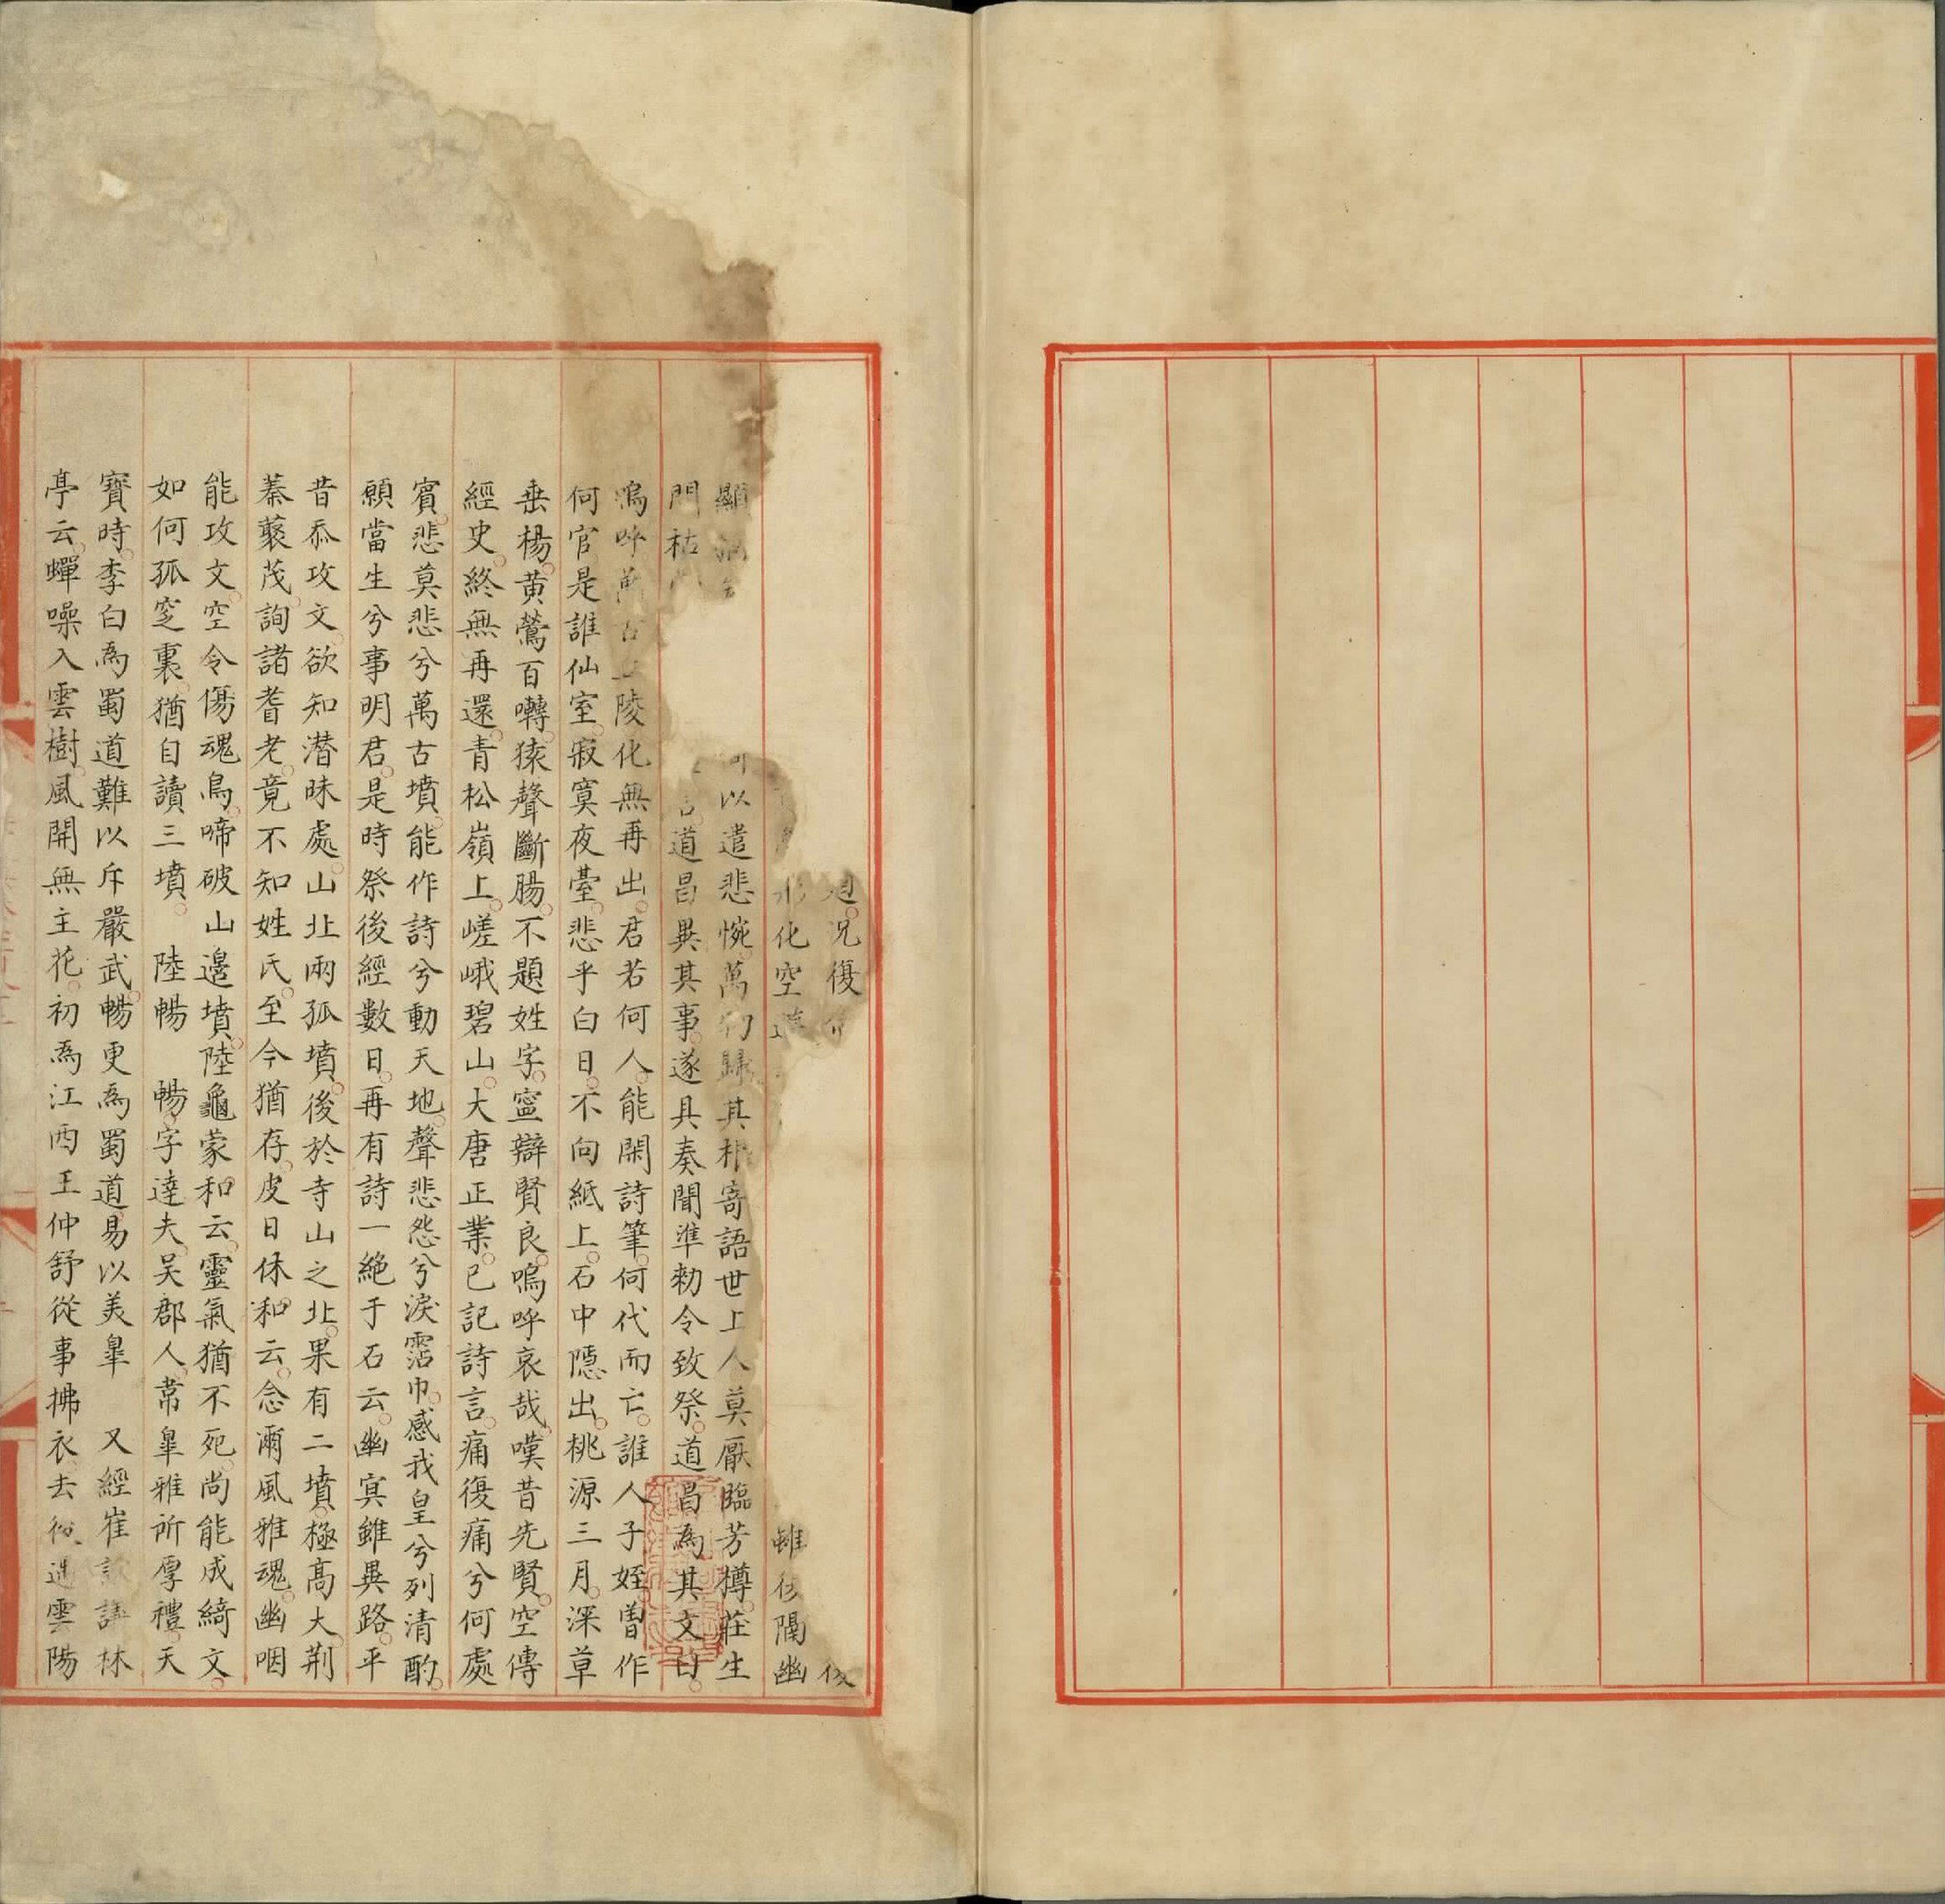 況復
化空 雖 隔幽
顯 以遣悲惋萬 歸其 寄語世上人莫厭臨芳樽莊生
門枯 言道昌異其事遂具奏聞準勅令致祭道昌為其文曰
嗚呼 古 陵化無再出君若何人能閑詩筆何代而亡誰人子姪曽作
何官是誰仙室寂寞夜臺悲乎白日不向紙上石中隱出桃源三月深草
垂楊黄鶯百囀猿聲斷腸不題姓字寧辯賢良嗚呼哀哉嘆昔先賢空傳
經史終無再還青松嶺上嵯峨碧山大唐正業已記詩言痛復痛兮何處
賓悲莫悲兮萬古墳能作詩兮動天地聲悲怨兮淚霑巾感我皇兮列清酌
願當生兮事明君是時祭後經數日再有詩一絶于石云幽㝠雖異路平
昔忝攻文欲知潜昧處山北兩孤墳後於寺山之北果有二墳極髙大荆
蓁藂茂詢諸耆老竟不知姓氏至今猶存皮日休和云念爾風雅魂幽咽
能攻文空令傷魂鳥啼破山邊墳陸龜蒙和云靈氣猶不死尚能成綺文
如何孤窆裏猶自讀三墳 陸暢 暢字達夫吴郡人常臯雅所厚禮天
寳時李白為蜀道難以斥嚴武暢更為蜀道易以美臯 又經崔諫議林
亭云蟬噪入雲樹風開無主花初為江西王仲舒從事拂衣去後遇雲陽